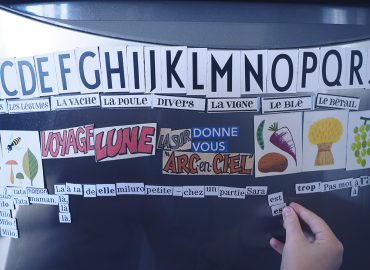 CDEFGHIJKLMNOPQR
LES LÉGUMES LA VACHE LA POULE DIVERS LA VIGNE LE BLÉ LE BÉTAIL
VOYAGE LUNE LA SUR DONNE
VOUS
ARC-EN-CIEL
tata La à ta de elle miluro petite – chez un partie Sara est trop ! Pas mot à
Tata maman là,
Milo là,
Milo là
Milo